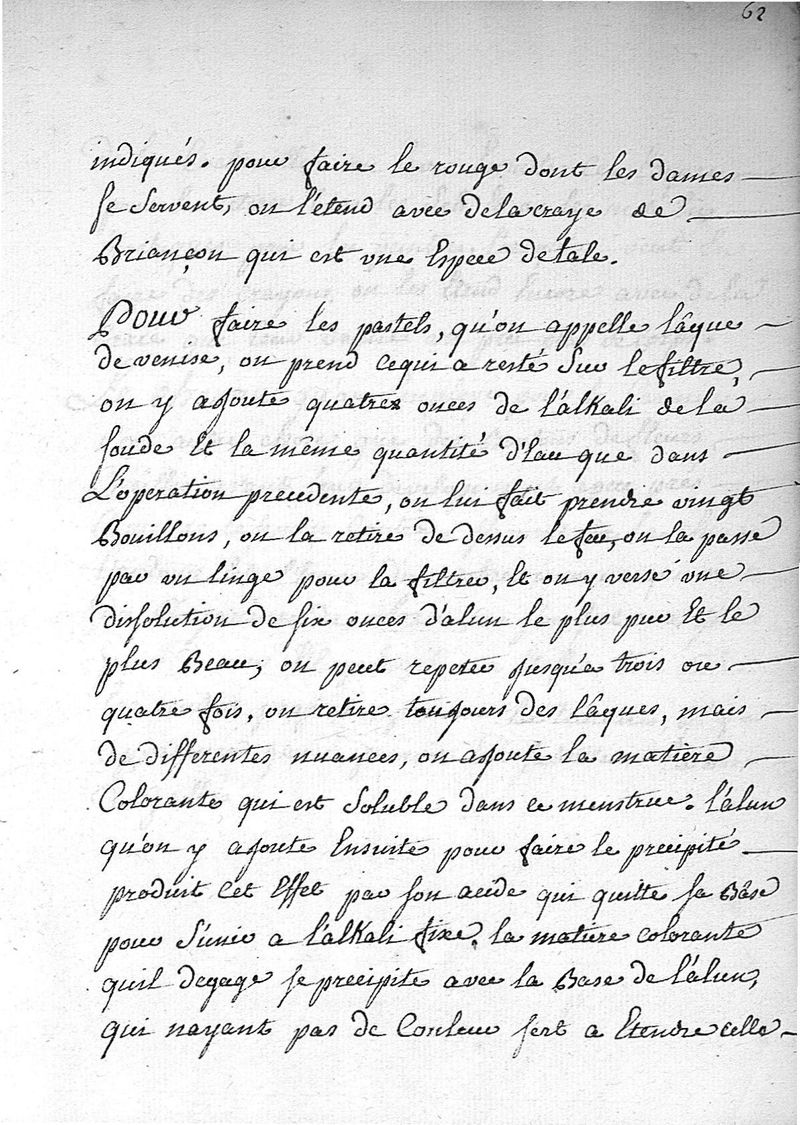 62
indiqués. pour faire le rouge dont les dames
se servent, on l'étend avec de la craye de
Briançon qui est une Espece de talc.
Pour faire les pastels, qu'on appelle lâque
de venise, on prend ce qui a resté sur le filtre,
on y ajoute quatre onces de l'alkali de la
soude Et la même quantité d'Eau que dans
L'operation precedente, on lui fait prendre vingt
Bouillons, on la retire de dessus le feu, on la passe
par un linge pour la filtrer, Et on y verse une
dissolution de six onces d'alun le plus pur Et le
plus Beau; on peut repeter jusqu'a trois ou
quatre fois, on retire toujours des lâques, mais
de differentes nuances, on ajoute la matiere
Colorante qui est Soluble dans ce menstrue. l'alun
qu'on y ajoute Ensuite pour faire le precipité
produit Cet Effet par son acide qui quitte sa Bâse
pour S'unir a l'alkali fixe. la matiere colorante
quil degage se precipite avec la Base de l'alun,
qui nayant pas de Couleur sert a Etendre celle